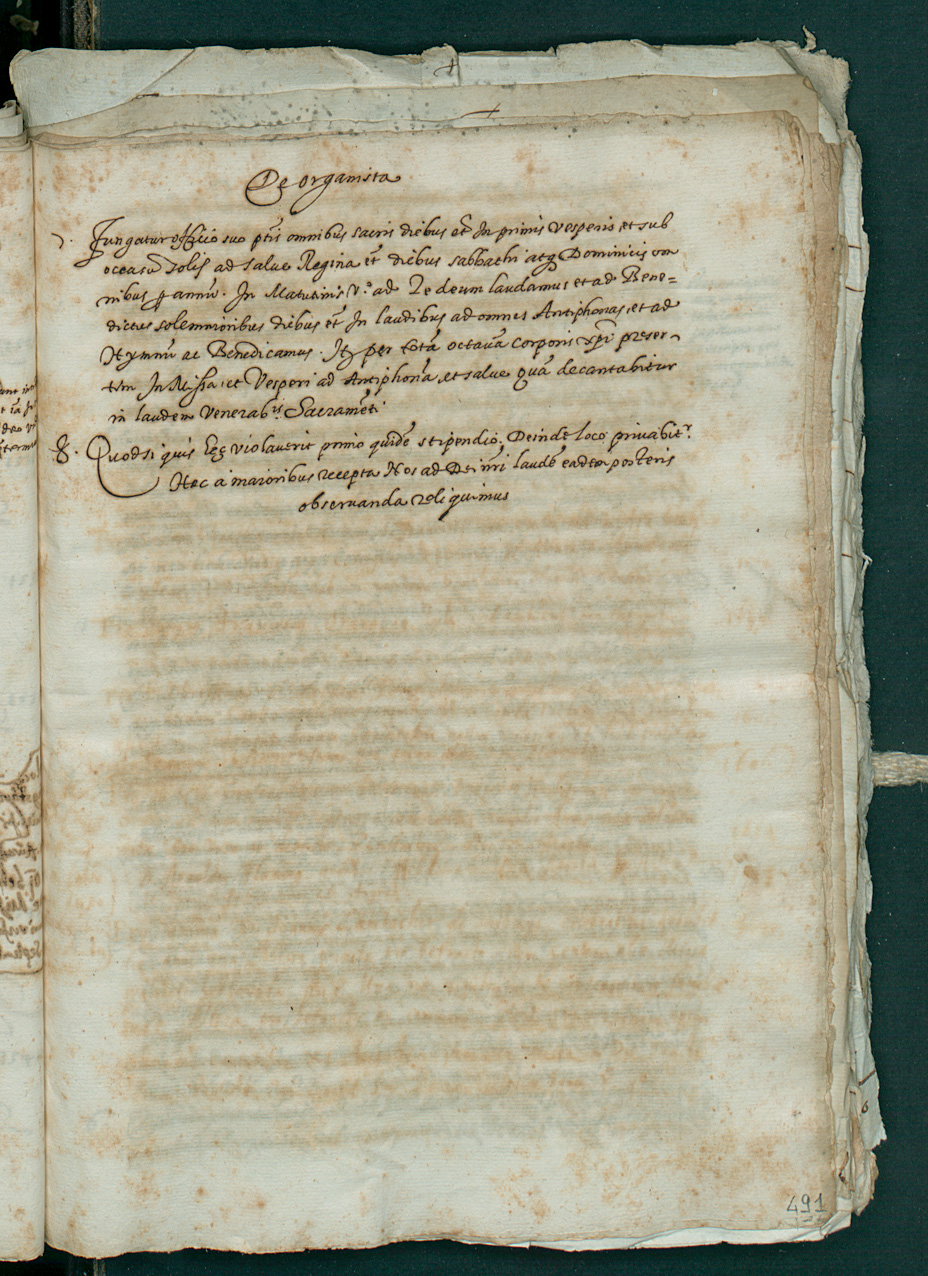 De organista
7. Fungatur officio suo ptis omnibus sacris diebus et In primis vesperis et sub
occasu solis ad salve Regina et diebus sabbathi atq Dominicis om
nibus p annu. In Matutinis v.º ad Te deum laudamus et ad Bene=
dictus solemnioribus diebus et In laudibus ad omnes Antiphonas et ad
Hymnu ac Benedicamus. It per tota octava corporis xpi preser-
tim In Missa et Vesperi ad Antiphona, et salve qua decantabitur
in laudem venerab.is Sacrameti
8. Quodsi quis violaverit primo quide stipendio, Deinde loco privabit.r
Hec a maioribus recepta Nos ad Dei nri laude eadem posteris
observanda reliquimus
491